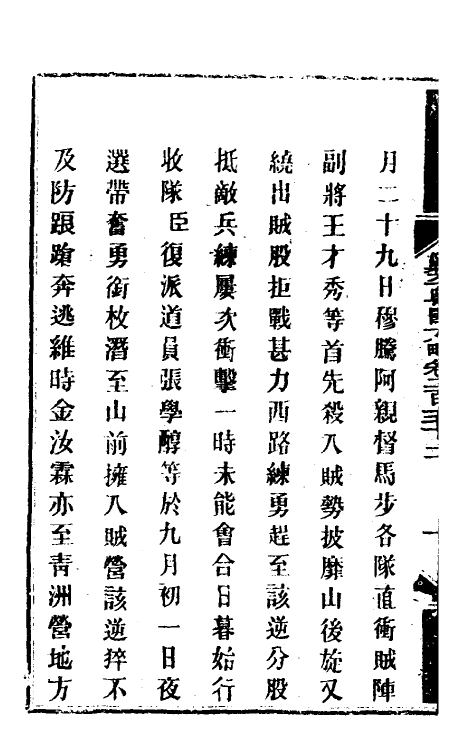 月二十九日穆騰阿親督馬步各隊直衝賊陣
副將王才秀等首先殺入賊勢披靡山後旋又
繞出賊股拒戰甚力西路練勇趕至該逆分股
抵敵兵練屢次衝擊一時未能會合日暮始行
收隊臣復派道員張學醇等於九月初一日夜
選帶奮勇銜枚潛至山前擁入賊營該逆猝不
及防踉蹌奔逃維時金汝霖亦至靑洲營地方